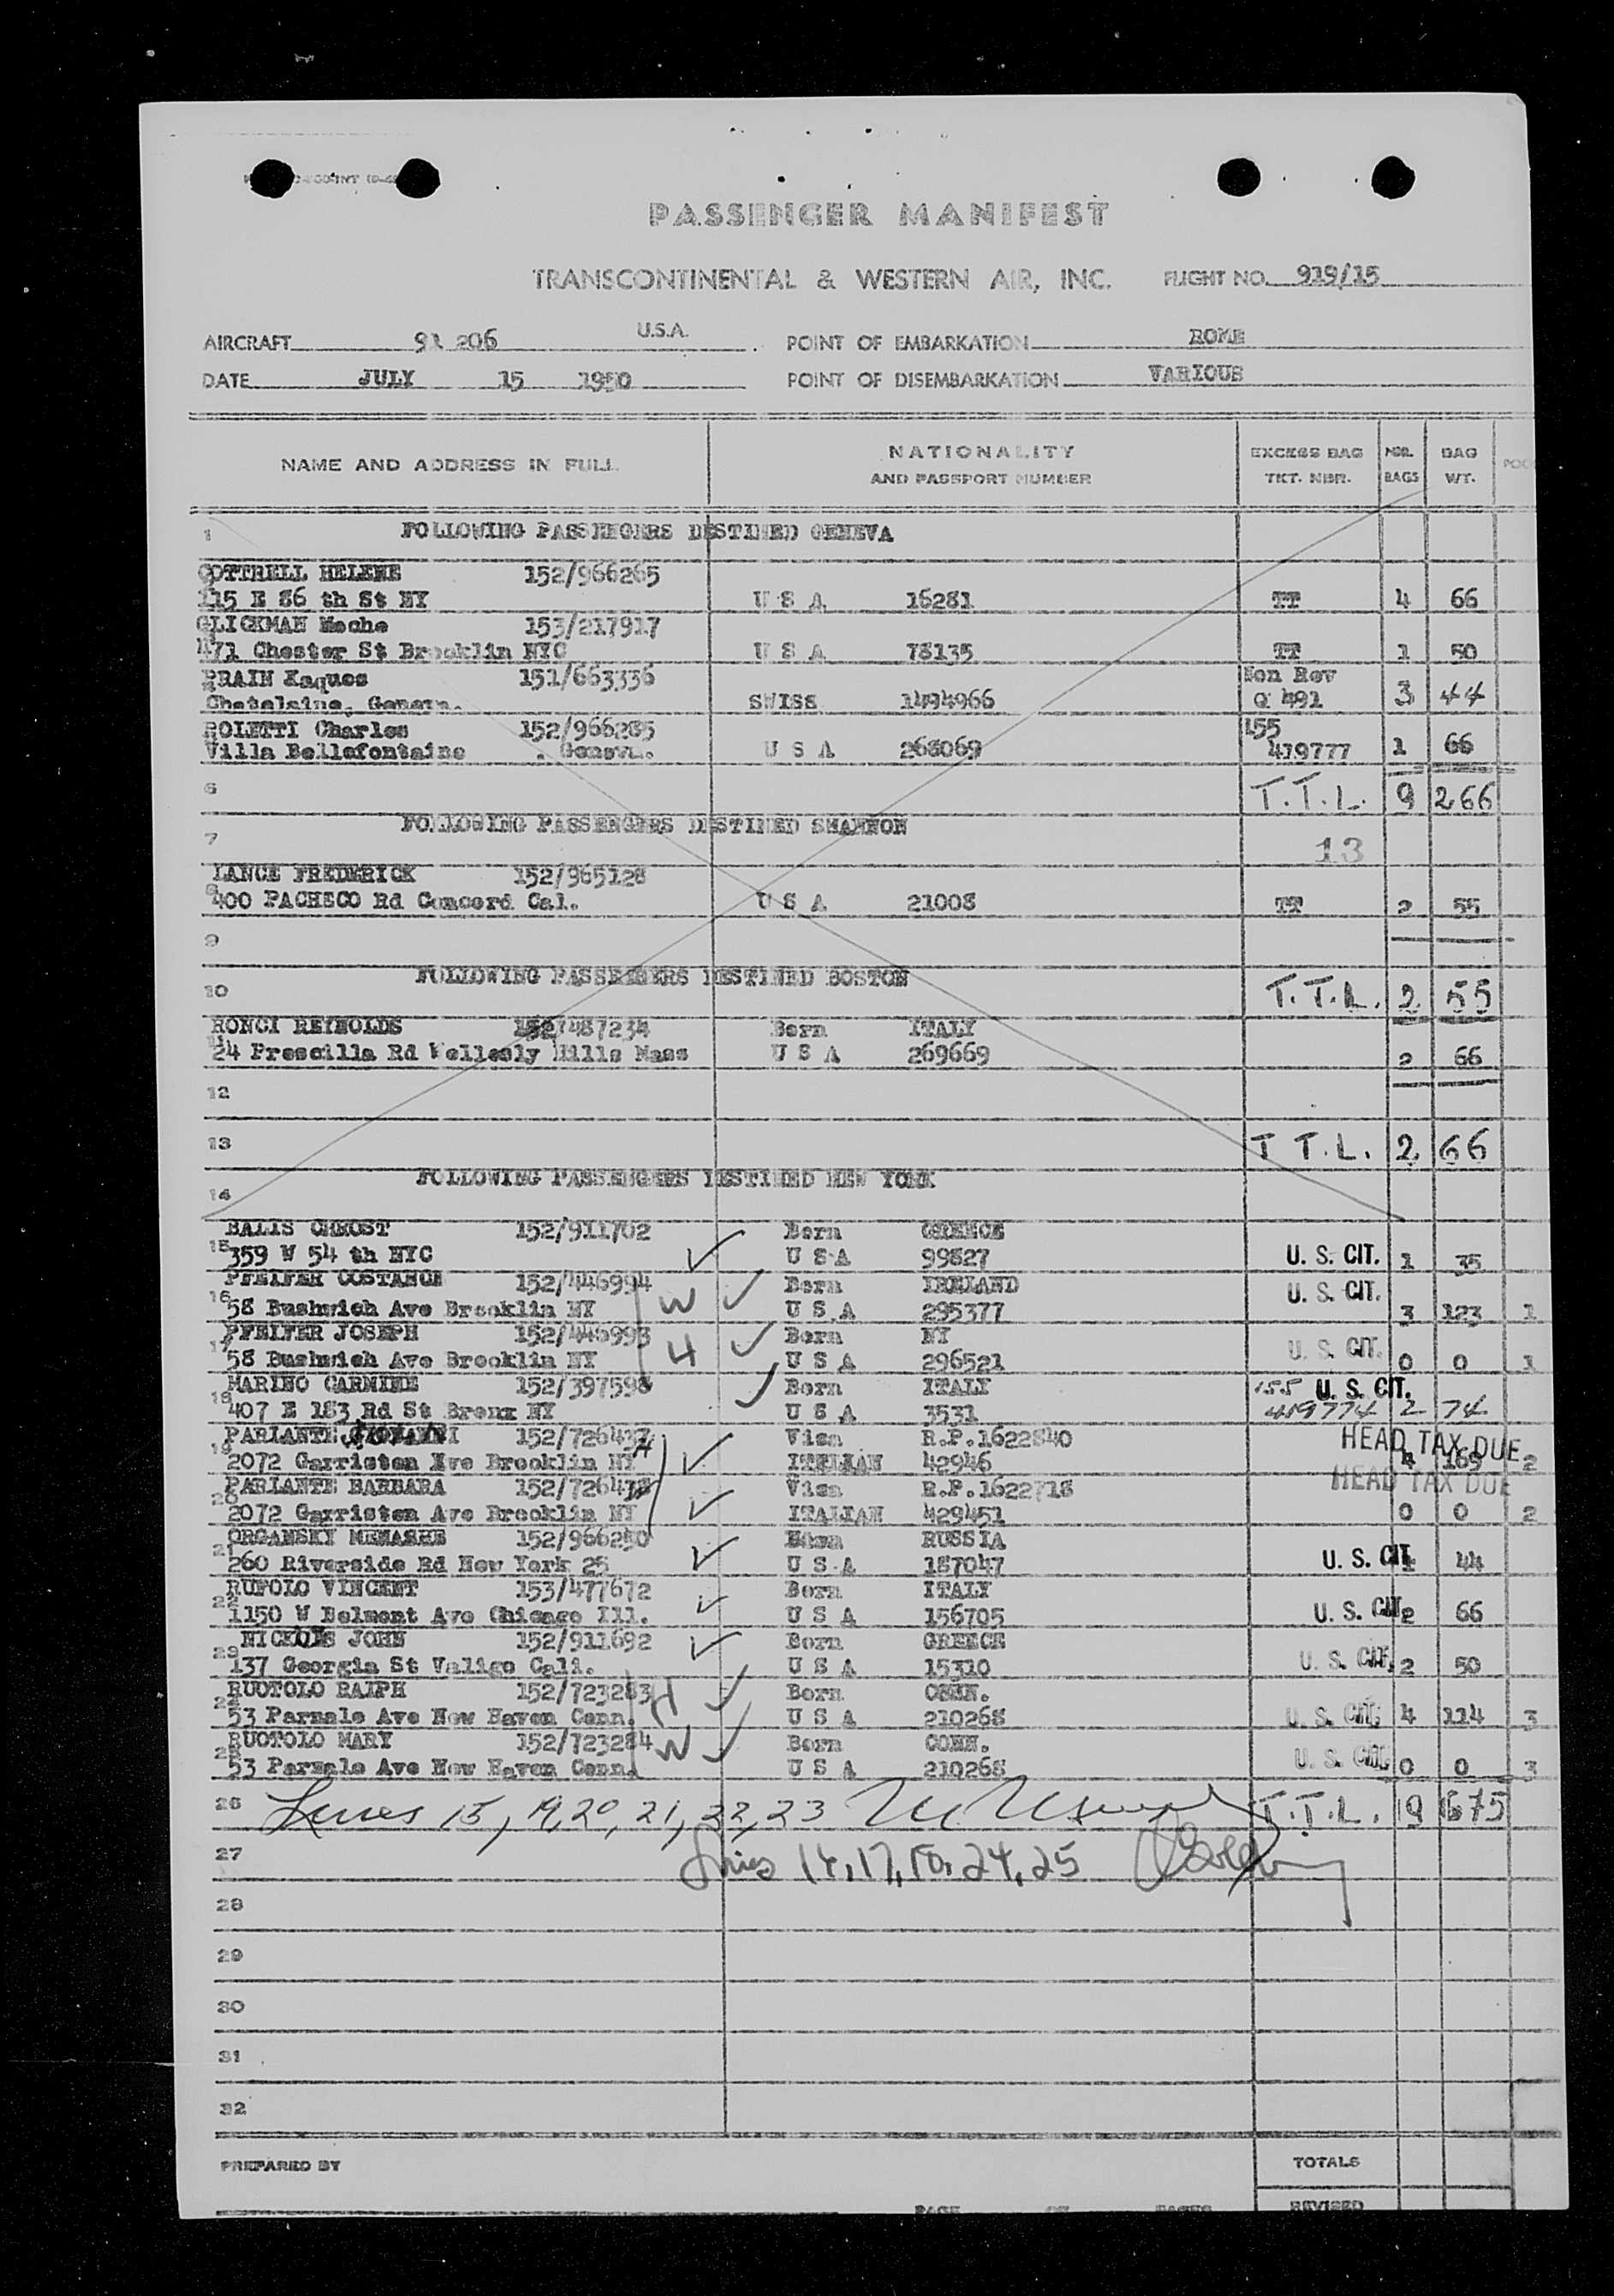 PASSENGER MANIFEST
TRANSCONTINENTAL & WESTERN AIR, INC. FLIGHT NO. 919/15
AIRCRAFT 91 206 U.S.A. POINT OF EMBARKATION ROME
DATE JULY 15 1950 POINT OF DISEMBARKATION VARIOUS
NAME AND ADDRESS IN FULL NATIONALITY AND PASSPORT NUMBER EXCESS BAG TKT. NBR. NBR. BAGS BAG WT.
1 FOLLOWING PASSENGERS DESTINED GENEVA
COTTRELL HELENE 152/966265
115 E 86 th St NY U S A 16281 TT 4 66
GLICKMAN Meche 153/217917
471 Chester St Brooklin NYC U S A 78135 TT 1 50
PRAIN Xaques 151/663336 Non Rev
Chatelaine, Geneva. SWISS 1494966 Q 491 3 44
ROLETTI Charles 152/966285 155
Villa Bellefontaine . Geneva. U S A 268069 419777 1 66
6 T.T.L. 9 266
7 FOLLOWING PASSENGERS DESTINED SHANNON 13
LANCE FREDERICK 152/965128
8 400 PACHECO Rd Concord Cal. U S A 21008 TT 2 55
9
10 FOLLOWING PASSENGERS DESTINED BOSTON T.T.L. 2 55
RONCI REINOLDS 152/487234 Born ITALY
24 Prescilla Rd Wellesly Hills Mass U S A 269669 2 66
12
13 T T.L. 2 66
14 FOLLOWING PASSENGERS DESTINED NEW YORK
BALIS CHROST 152/911702 Born GREECE
15 359 W 54 th NYC U S A 99827 U. S. CIT. 1 35
PFEIFER COSTANCE 152/446994 W Born IRELAND U. S. CIT.
16 58 Bushwich Ave Brooklin NY U S A 295377 3 123 1
PFEIFER JOSEPH 152/446993 H Born NY U. S. CIT.
17 58 Bushwich Ave Brooklin NY U S A 296521 0 0 1
MARINO CARMINE 152/397598 Born ITALY 155 U. S. CIT.
18 407 E 183 Rd St Bronx NY U S A 3531 419774 2 74
PARLANTE 152/726437 Visa R.P.1622840 HEAD TAX DUE
19 2072 Garristen Ave Brooklin NY H ITELIAN 42946 4 169 2
PARLANTE BARBARA 152/726438 Visa R.P.1622718 HEAD TAX DUE
20 2072 Garristen Ave Brooklin NY ITALIAN 429451 0 0 2
ORGANSKY MENASHE 152/966280 Born RUSSIA
21 260 Riverside Rd New York 25 U S A 187047 U. S. CIT. 1 44
RUFOLO VINCENT 153/477672 Born ITALY
22 1150 W Belmont Ave Chicago Ill. U S A 156705 U. S. CIT. 2 66
JOHN 152/911692 Born GREECE
23 137 Georgia St Valigo Cali. U S A 15310 U. S. CIT. 2 50
RUOTOLO RALPH 152/723283 H Born CONN.
24 53 Parmale Ave New Haven Conn. U S A 210268 U. S. CIT. 4 114 3
RUOTOLO MARY 152/723284 W Born CONN.
25 53 Parmale Ave New Haven Conn. U S A 210268 U. S. CIT. 0 0 3
26 Lines 15, 19, 20, 21, 22, 23 T.T.L. 19 675
27 Lines 16, 17, 18, 24, 25
28
29
30
31
32
PREPARED BY TOTALS
PAGE OF PAGES REVISED